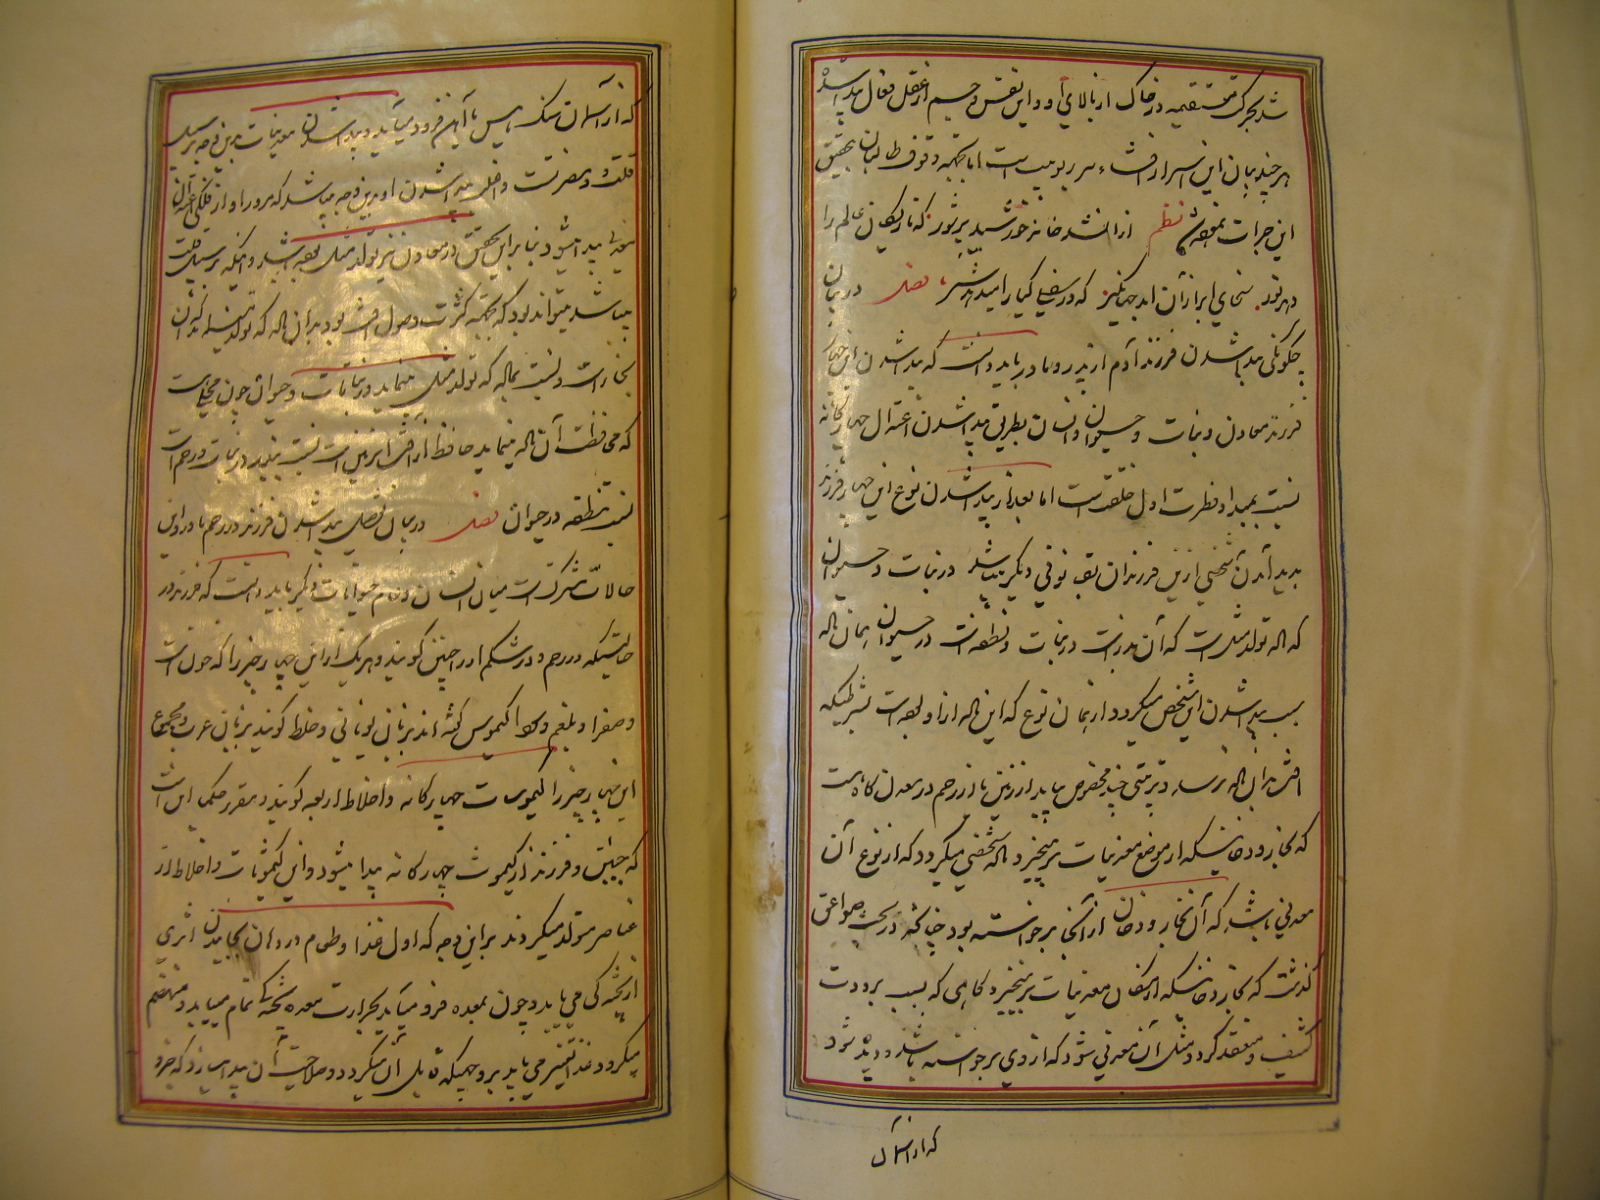 شد بحرکت مستقیمه در خاک از بالای او و این نفس و جسم از عقل فعال پیدا شده
هر چند بیان این اسرار افشاء سر ربوبیت است اما بجهة وقوف طالبان بتحقیق
این جرات نموده شد نظم از آتشخانه خورشید پرنور که تاریکان عالم را
دهد نور سخای ابر از آن آمد جهانگیر که در طفلی گیا را میدهد شیر فصل در بیان
چگونگی پیدا شدن فرزند آدم از پدر و مادر باید دانست که پیدا شدن این چهار
فرزند معادن و نبات و حیوان و انسان بطریق پیدا شدن اعتدال چهارگانه
نسبت بمبدا و فطرت اول خلقتست اما بعد از پیدا شدن نوع این چهار فرزند
پدید آمدن شخصی ازین فرزندان بف نوقی دیگر میباشد در نبات و حیوان
که اله تولد مثلست که آن بذرست در نبات و نطفه است در حیوان همان اله
سبب پیدا شدن این شخص میگردد از همان نوع که این اله از او بوده است بشرطیکه
افتی بدان اله نرسد و تربیتی چند مخصوص بیابد از زمین یا از رحم در معدن گاه هست
که بخار و دخانیکه از موضع معدنیات بر میخیزد اله شخصی میگردد که از نوع آن
معدنی باشد که آن بخار و دخان از آنجا برخواسته بود چنانکه در بحث صواعق
گذشت که بخار و دخانیکه از مکان معدنیات بر میخیزد گاهی که بسبب برودت
کثیف و منعقد گردد مثل آن معدنی شود که از وی برخواسته باشد و دیده شود
که از آسمان
که از آسمان سنگ یا مس یا آهن فرود میآید و پیدا شدن معدنیات بدین وجه بر سبیل
قلت و ندرتست و اغلب پیدا شدن او بدین وجه میباشد که بمرور او از فلکی اعتدال
معدنی پیدا میشود بنا براین تحقیق در معادن نیز تولد مثل بوده باشد و اینکه بر سبیل قلت
میباشد میتواند بود که بجهة کثرت وصول افت بود بدان اله که تولد مثل
بخار است و نسبت بماله که تولد مثل مینماید در نباتات و حیوان چون
که محافظت آن اله مینماید حافظ از افت زمین است نسبت ببذر در نبات و رحم است
نسبت بنطفه در حیوان فصل در بیان تفصیل پیدا شدن فرزند در رحم مادر و این
حالات مشترکست میان انسان و تمام حیوانات دیگر باید دانست که فرزند در
حالتیکه در رحم و در شکم مادر است جنین گویند و هر یک از این چهار چیز را که خون است
و صفرا و بلغم و سودا کیموس گفته اند بزبان یونانی و خلط گویند بزبان عرب و مجموع
این چهار چیز را کیموسات چهارگانه و اخلاط اربعه گویند و مقرر حکما این است
که جنین و فرزند از کیموسات چهارگانه پیدا میشود و این کیموسات و اخلاط از
عناصر متولد میگردند براین وجه که اول غذا و طعام در دهان بخاییدن اثری
از پختگی می یابد و چون بمعده فرو میآید بحرارت معده پختگی تمام میابد و منهضم
میگردد و غذا تغییر می یابد بر وجهیکه قابل آن میگردد و صلاحیت آن پیدا میسازد که جزو